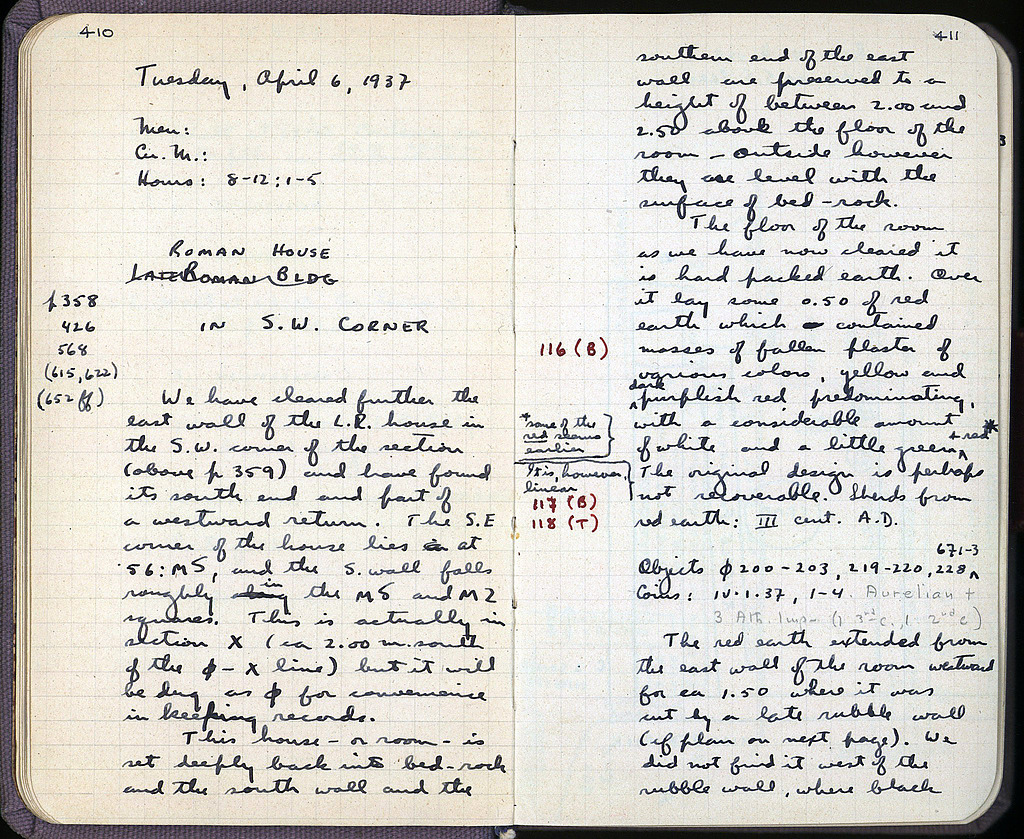 410
Tuesday, April 6, 1937
Men:
Cu. M.:
Hours: 8-12; 1-5
ROMAN HOUSE
LATE ROMAN BLDG
IN S.W. CORNER
p 358
426
568
(615, 622)
(652 ff)
We have cleared further the
east wall of the L.R. house in
the S.W. corner of the section
(above p 359) and have found
its south end and part of
a westward return. The S.E
corner of the house lies at
56:MS, and the S. wall falls
roughly in the MS and MZ
squares. This is actually in
section X (ca 2.00 m. south
of the φ-X line) but it will
be dug as φ for convenience
in keeping records.
This house - or room - is
set deeply back into bed-rock
and the south wall and the
411
southern end of the east
wall are preserved to a
height of between 2.00 and
2.50 above the floor of the
room - outside however
they are level with the
surface of bed-rock.
The floor of the room
as we have now cleared it
is hard packed earth. Over
it lay some 0.50 of red
earth which contained
masses of fallen plaster of
various colors, yellow and
dark
purplish red predominating,
with a considerable amount
of white and a little green + red *
The original design is perhaps
not recoverable. Sherds from
red earth: III cent. A.D.
116 (B)
* some of the
red seems
earlier
It is, however,
linear
117 (B)
118 (T)
671-3
Objects φ 200-203, 219-220, 228
Coins: IV.1.37, 1-4. Aurelian +
3 Ath. Imp. (1 3rd c, 1 2nd c)
The red earth extended from
the east wall of the room westward
for ca 1.50 where it was
cut by a late rubble wall
(cf plan on next page). We
did not find it west of the
rubble wall, where black